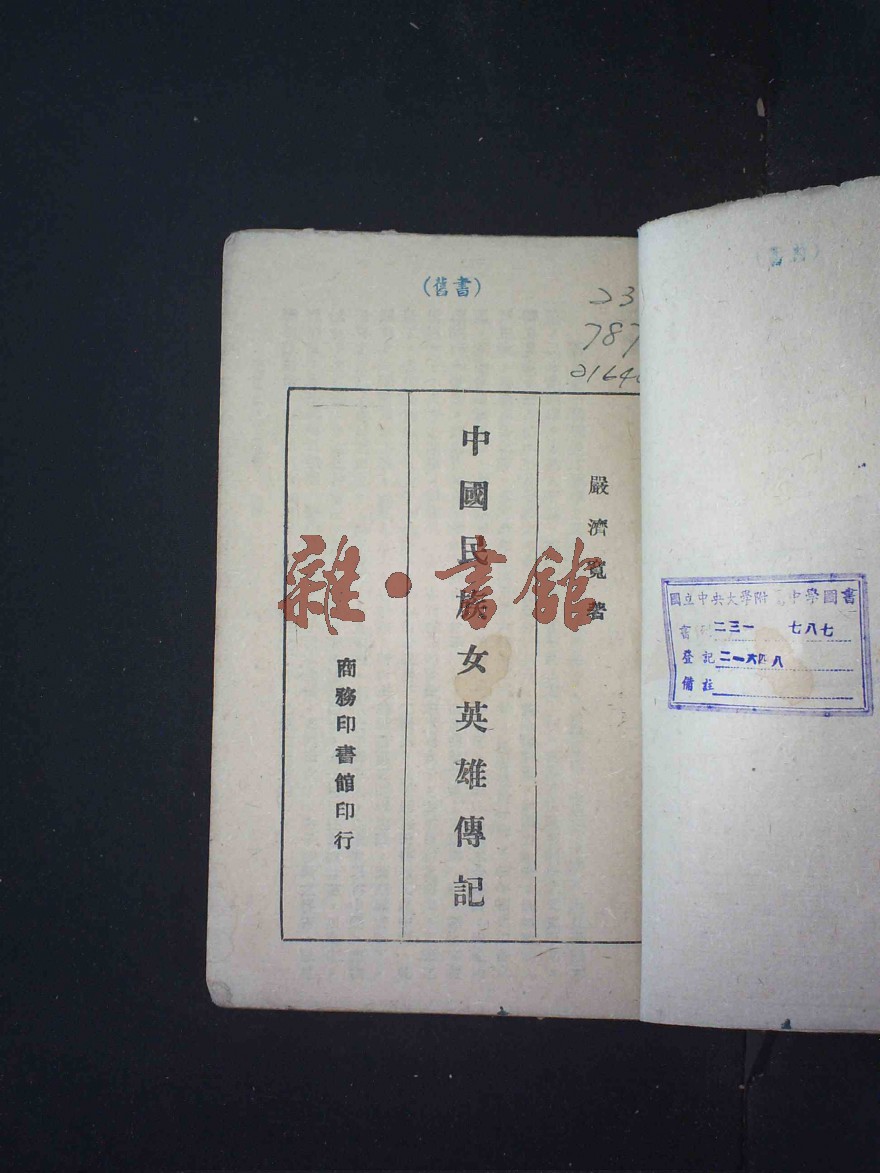 (舊書)
23
787
2164
嚴濟寬著
中國民族女英雄傳記
商務印書館印行
雜·書館
國立中央大學附 中學圖書
書 二三一 七八七
登記 二一六四八
備註